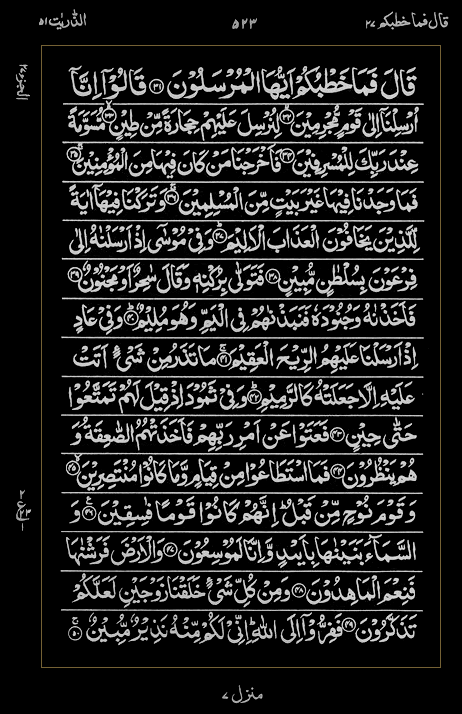 قال فما خطبكم ٢٧
٥٢٣
الذّٰريٰت ٥١
الجزء ٢٧
قَالَ فَمَا خَطْبُكُمْ اَيُّهَا الْمُرْسَلُوْنَ ۝٣١ قَالُوْۤا اِنَّاۤ
اُرْسِلْنَاۤ اِلٰى قَوْمٍ مُّجْرِمِيْنَ ۝٣٢ لِنُرْسِلَ عَلَيْهِمْ حِجَارَةً مِّنْ طِيْنٍ ۝٣٣ مُّسَوَّمَةً
عِنْدَ رَبِّكَ لِلْمُسْرِفِيْنَ ۝٣٤ فَاَخْرَجْنَا مَنْ كَانَ فِيْهَا مِنَ الْمُؤْمِنِيْنَ ۝٣٥
فَمَا وَجَدْنَا فِيْهَا غَيْرَ بَيْتٍ مِّنَ الْمُسْلِمِيْنَ ۝٣٦ وَتَرَكْنَا فِيْهَاۤ اٰيَةً
لِّلَّذِيْنَ يَخَافُوْنَ الْعَذَابَ الْاَلِيْمَ ۝٣٧ وَفِيْ مُوْسٰۤى اِذْ اَرْسَلْنٰهُ اِلٰى
فِرْعَوْنَ بِسُلْطٰنٍ مُّبِيْنٍ ۝٣٨ فَتَوَلّٰى بِرُكْنِهٖ وَقَالَ سٰحِرٌ اَوْ مَجْنُوْنٌ ۝٣٩
فَاَخَذْنٰهُ وَجُنُوْدَهٗ فَنَبَذْنٰهُمْ فِى الْيَمِّ وَهُوَ مُلِيْمٌ ۝٤٠ وَفِيْ عَادٍ
اِذْ اَرْسَلْنَا عَلَيْهِمُ الرِّيْحَ الْعَقِيْمَ ۝٤١ مَا تَذَرُ مِنْ شَيْءٍ اَتَتْ
عَلَيْهِ اِلَّا جَعَلَتْهُ كَالرَّمِيْمِ ۝٤٢ وَفِيْ ثَمُوْدَ اِذْ قِيْلَ لَهُمْ تَمَتَّعُوْا
حَتّٰى حِيْنٍ ۝٤٣ فَعَتَوْا عَنْ اَمْرِ رَبِّهِمْ فَاَخَذَتْهُمُ الصّٰعِقَةُ وَ
هُمْ يَنْظُرُوْنَ ۝٤٤ فَمَا اسْتَطَاعُوْا مِنْ قِيَامٍ وَّمَا كَانُوْا مُنْتَصِرِيْنَ ۝٤٥
وَقَوْمَ نُوْحٍ مِّنْ قَبْلُ اِنَّهُمْ كَانُوْا قَوْمًا فٰسِقِيْنَ ۝٤٦ وَ
السَّمَآءَ بَنَيْنٰهَا بِاَيْىدٍ وَّاِنَّا لَمُوْسِعُوْنَ ۝٤٧ وَالْاَرْضَ فَرَشْنٰهَا
فَنِعْمَ الْمَاهِدُوْنَ ۝٤٨ وَمِنْ كُلِّ شَيْءٍ خَلَقْنَا زَوْجَيْنِ لَعَلَّكُمْ
تَذَكَّرُوْنَ ۝٤٩ فَفِرُّوْۤا اِلَى اللّٰهِ اِنِّيْ لَكُمْ مِّنْهُ نَذِيْرٌ مُّبِيْنٌ ۝٥٠
منزل ٧